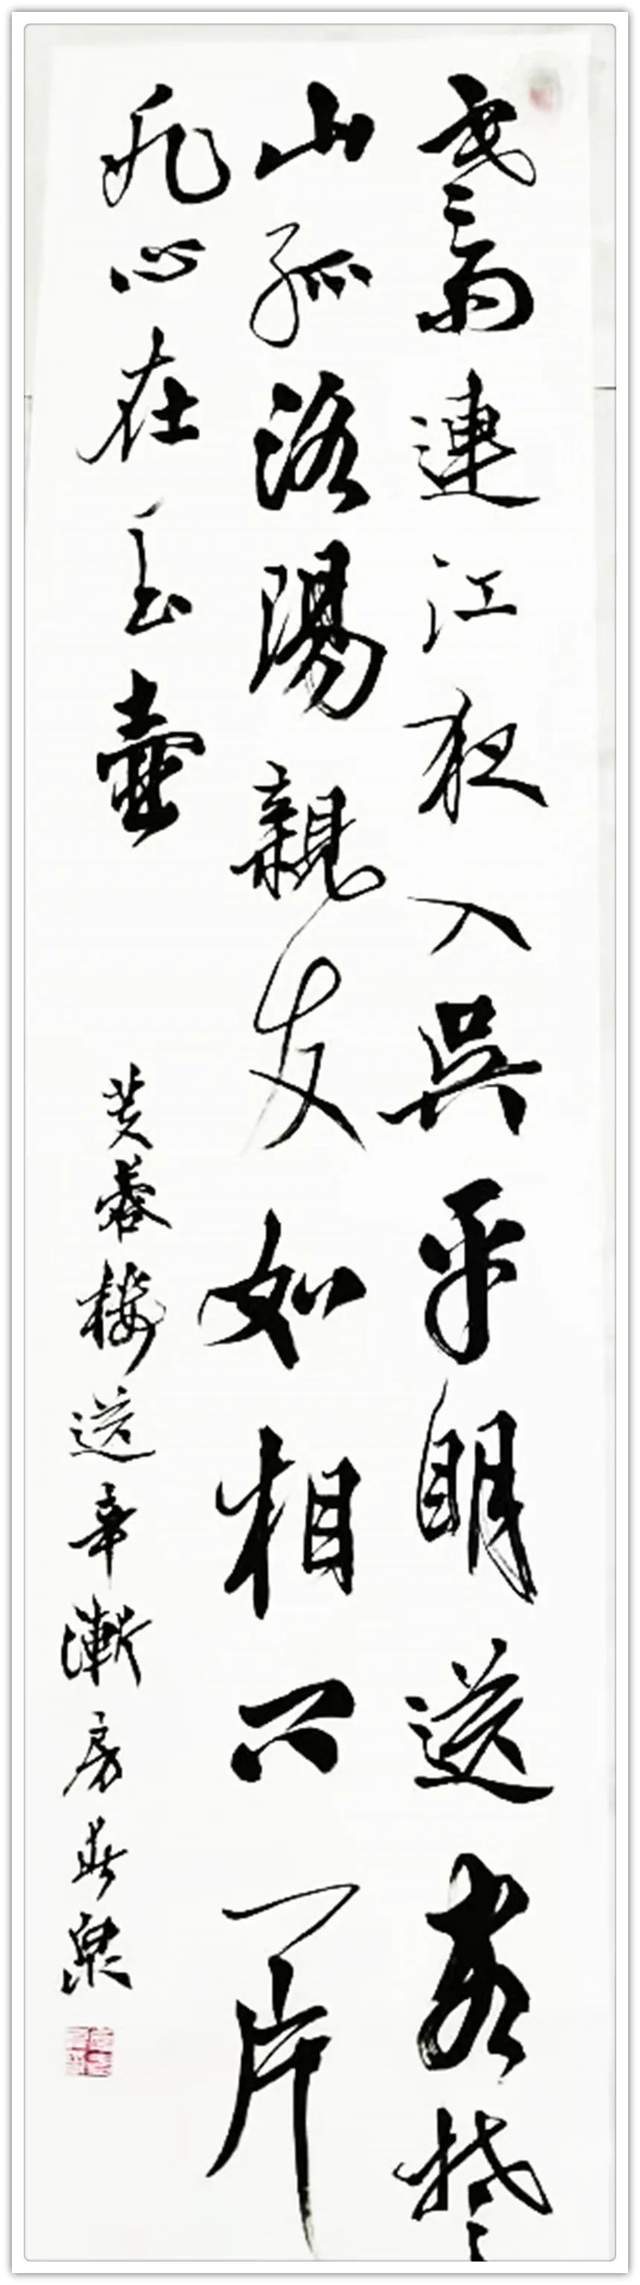 寒雨連江夜入吳平明送客楚
山孤洛陽親友如相问一片
冰心在玉壺
芙蓉樓送辛漸 房